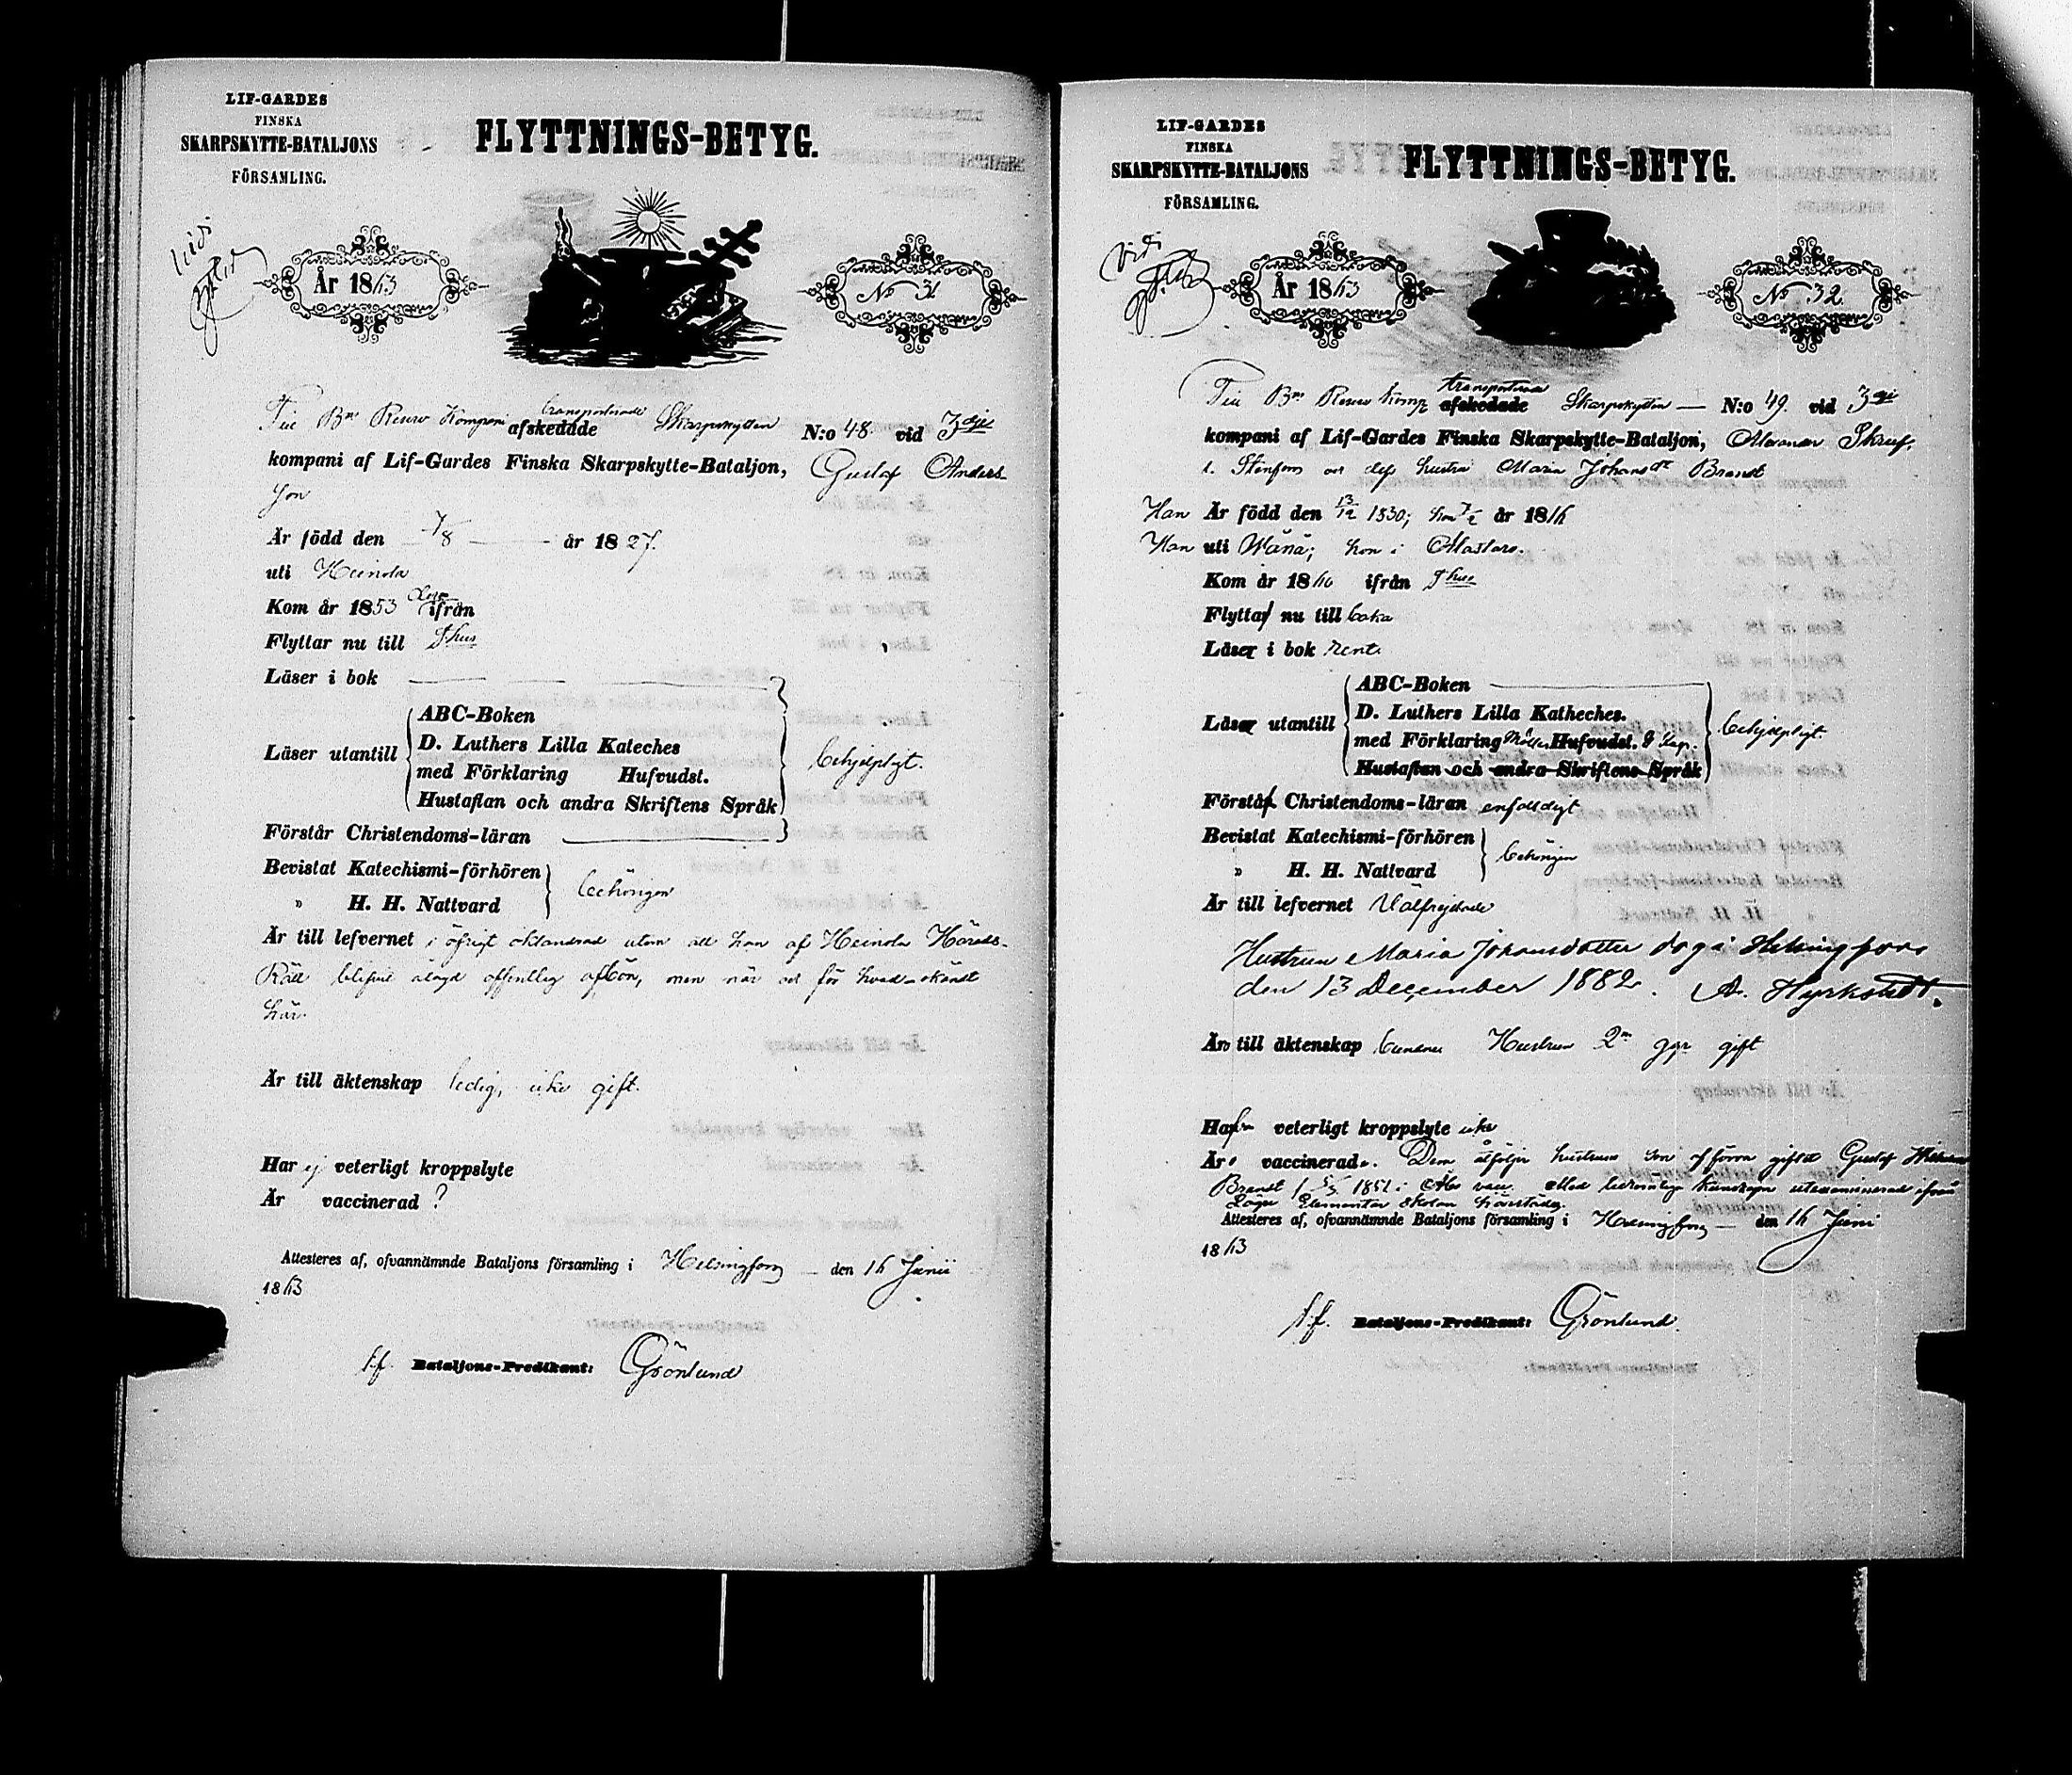 LIF-GARDES
FINSKA
SKARPSKYTTE-BATALJONS
FÖRSAMLING.
FLYTTNINGS-BETYG.
Vidi
År 1863
No 31.
Till Bns Reserv Kompani transporterade
afskedade Skarpskytten N:o 48. vid 3dje
kompani af Lif-Gardes Finska Skarpskytte-Bataljon, Gustaf Anders-
son
Är född den 7/8 år 1827.
uti Heinola
Kom år 1853 ifrån
Flyttar nu till
Läser i bok
Läser utantill
ABC-Boken
D. Luthers Lilla Kateches
med Förklaring Hufvudst.
Hustaflan och andra Skriftens Språk
behjelpligt.
Förstår Christendoms-läran
Bevistat Katechismi-förhören
" H. H. Nattvard
behörigen
Är till lefvernet i öfrigt oklandrad utom att han af Heinola Härads-
Rätt blifvit ålagd offentlig afbön, men när och för hvad okändt
här.
Är till äktenskap ledig, icke gift.
Har ej veterligt kroppslyte
Är vaccinerad ?
Attesteres af, ofvannämnde Bataljons församling i Helsingfors den 16 Junii
1863
Bataljons-Predikant: Grönlund
LIF-GARDES
FINSKA
SKARPSKYTTE-BATALJONS
FÖRSAMLING.
FLYTTNINGS-BETYG.
Vidi
År 1863
No 32.
Till Bns Reserv Komp transporterade
afskedade Skarpskytten N:o 49. vid 3dje
kompani af Lif-Gardes Finska Skarpskytte-Bataljon, Alexander
och dess hustru Maria Johansdr Brandt
Han Är född den 13/12 1830; hon 7/2 år 1816
Han uti Wånå; hon i Masku.
Kom år 1860 ifrån
Flytta nu till baka
Läser i bok rent.
Läser utantill
ABC-Boken
D. Luthers Lilla Katheches.
med Förklaring Hufvudst. 8 Kap.
Hustaflan och andra Skriftens Språk
behjelpligt
Förstå Christendoms-läran enfaldigt
Bevistat Katechismi-förhören
" H. H. Nattvard
behörigen
Är till lefvernet Välfrejdade
Hustrun Maria Johansdotter dog i Helsingfors
den 13 December 1882. A. Hyrkstedt.
Äro till äktenskap bundne Hustrun 2n ggr gift
Hafva veterligt kroppslyte icke
Äro vaccinerade. Dem åtföljer hustruns son af förra giftet Gustaf Wilhelm
Brandt 1851 i Åbo
Elementar skolan härstädes.
Attesteres af, ofvannämnde Bataljons församling i Helsingfors den 16 Juni
1863
Bataljons-Predikant: Grönlund